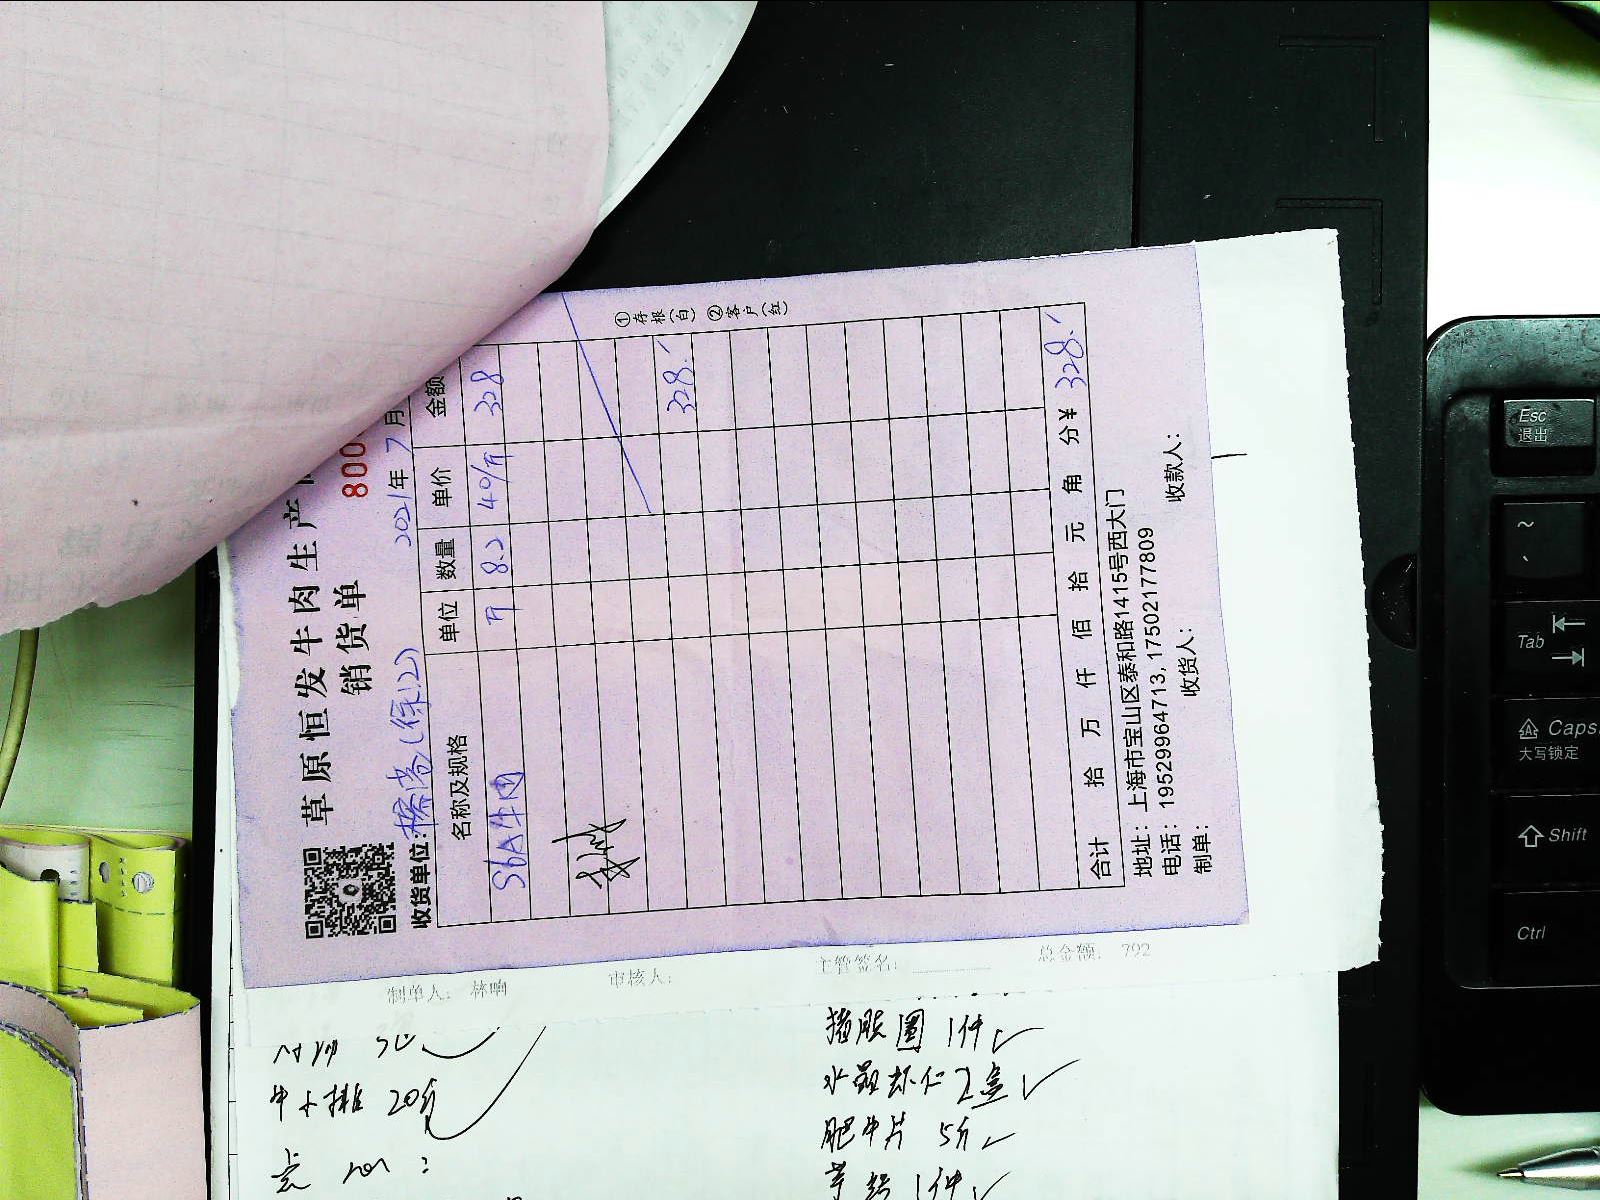 草原恒发牛肉生产
销货单
800
2021年7月
收货单位:
名称及规格 单位 数量 单价 金额
S6A牛肉 斤 8.2 40/斤 328
328.
合计 拾 万 仟 佰 拾 元 角 分¥ 328.
地址：上海市宝山区泰和路1415号西大门
电话：19529964713, 17502177809
制单： 收货人： 收款人：
①存根(白) ②客户(红)
制单人： 林响 审核人： 主管签名： 总金额： 792
牛小排 20斤
猪脒圈 1件
水晶虾仁 2盒
肥牛片 5斤
1件
Esc
退出
~
Tab
Caps
大写锁定
Shift
Ctrl